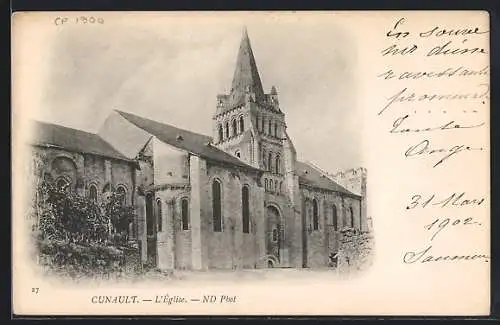 CP 1900
En souve
nir d'une
ravissante
promenade
Tante
Ange
31 Mars
1902
Saumur
27
CUNAULT. — L'Église. — ND Phot